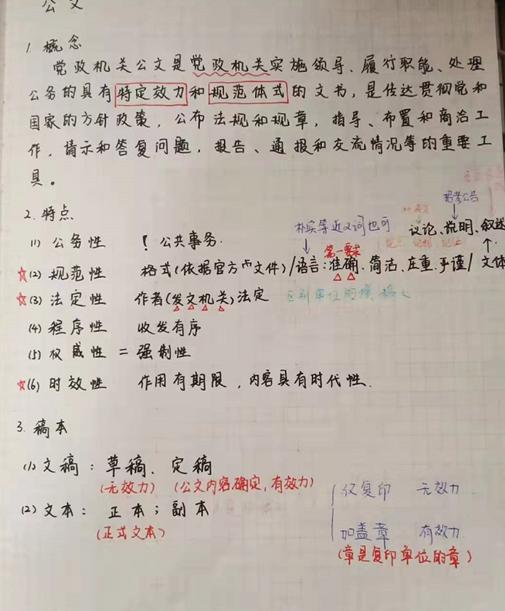 公文
1. 概念
党政机关公文是党政机关实施领导、履行职能、处理
公务的具有特定效力和规范体式的文书，是传达贯彻党和
国家的方针政策，公布法规和规章，指导、布置和商洽工
作，请示和答复问题，报告、通报和交流情况等的重要工
具。
2. 特点
朴实等近义词也可
议论、说明、叙述
(1) 公务性 ！公共事务.
第一要求
☆(2) 规范性 格式(依据官方的文件)/语言:准确、简洁、庄重、平谨/文体
☆(3) 法定性 作者(发文机关)法定
(4) 程序性 收发有序
(5) 权威性 = 强制性
☆(6) 时效性 作用有期限，内容具有时代性.
3. 稿本
(1) 文稿：草稿、定稿
(无效力) (公文内容确定，有效力)
仅复印 无效力
(2) 文本：正本；副本
(正式文本)
加盖章 有效力
(章是复印单位的章)